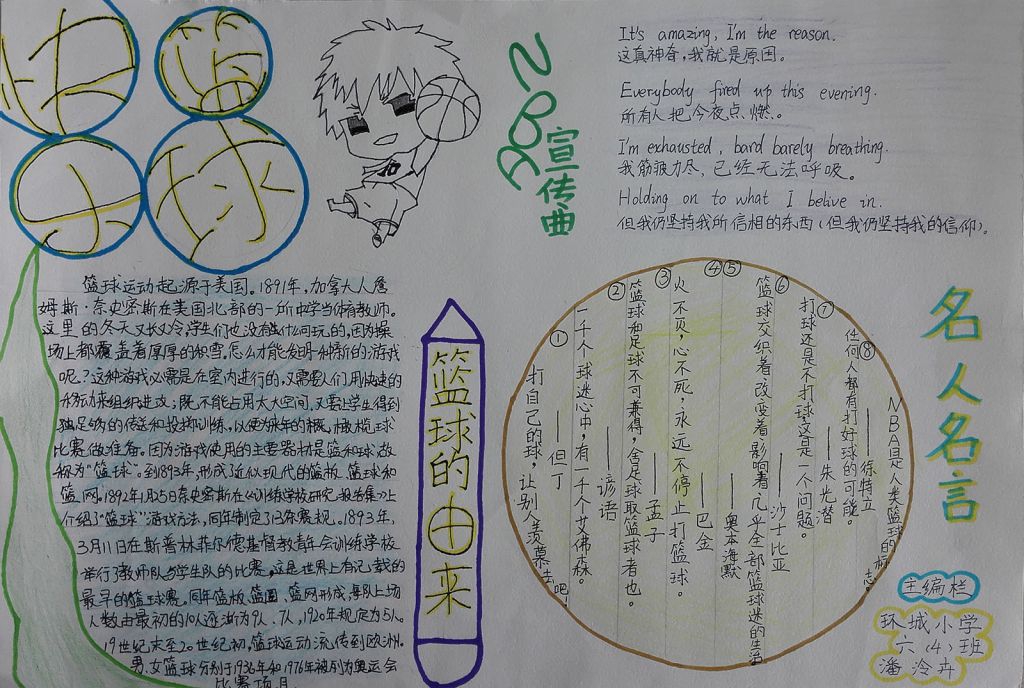 快
篮
乐
球
NBA宣传曲
It's amazing, I'm the reason.
这真神奇，我就是原因。
Everybody fired up this evening.
所有人把今夜点燃。
I'm exhausted, bard barely breathing.
我筋疲力尽，已经无法呼吸。
Holding on to what I belive in.
但我仍坚持我所信相的东西（但我仍坚持我的信仰）。
篮球运动起源于美国。1891年，加拿大人詹
姆斯·奈史密斯在美国北部的一所中学当体育教师。
这里的冬天又长又冷，学生们也没有什么可玩的，因为操
场上都覆盖着厚厚的积雪，怎么才能发明一种新的游戏
呢？这种游戏必需是在室内进行的，又需要人们用快速的
移动来组织进攻；既不能占用太大空间，又要让学生得到
独足够的传送和投掷训练，以便为来年的橄榄球
比赛做准备。因为游戏使用的主要器材是篮和球，故
称为“篮球”。到1893年，形成了近似现代的篮板、篮球和
篮网。1892年1月5日奈史密斯在《训练学校研究报告集》上
介绍了“篮球”游戏方法，同年制定了13条赛规。1893年，
3月11日在斯普林菲尔德基督教青年会训练学校
举行了教师队与学生队的比赛，这是世界上有记载的
最早的篮球赛。同年篮板、篮圈、篮网形成，每队上场
人数由最初的10人逐渐为9人、7人，1920年规定为5人。
19世纪末至20世纪初，篮球运动流传到欧洲。
男、女篮球分别于1936年和1976年被列为奥运会
比赛项目。
篮球的由来
名人名言
① 打自己的球，让别人羡慕去吧！
——但丁
② 一千个球迷心中，有一千个艾佛森。
——谚语
③ 篮球和足球不可兼得，舍足球取篮球者也。
——孟子
④ 火不灭，心不死，永远不停止打篮球。
——巴金
⑤
——奥本海默
⑥ 篮球交织着改变着影响着几乎全部篮球迷的生活
——沙士比亚
⑦ 打球还是不打球这是一个问题。
——朱光潜
⑧ 任何人都有打好球的可能。
——徐特立
NBA是人类篮球的标志。
主编栏
环城小学
六（4）班
潘泠卉